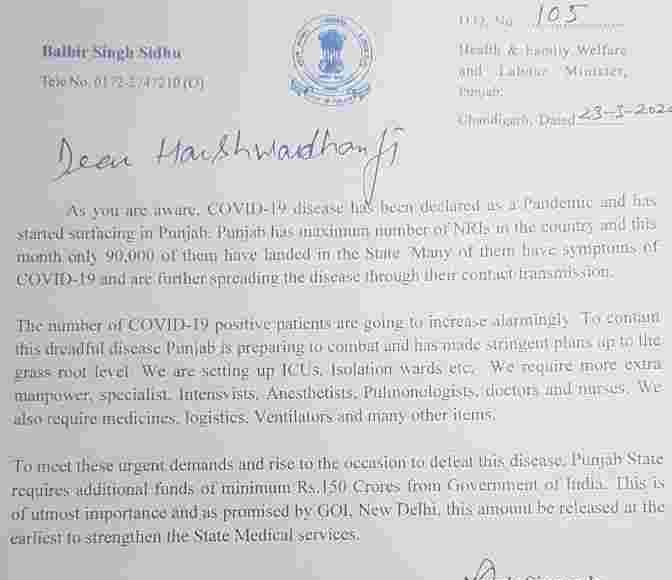 Balbir Singh Sidhu
Tele No. 0172-2747210 (O)
D.O. No. 105
Health & Family Welfare
and Labour Minister,
Punjab.
Chandigarh, Dated 23-3-2020
Dear Harshwardhan Ji
As you are aware, COVID-19 disease has been declared as a Pandemic and has
started surfacing in Punjab. Punjab has maximum number of NRIs in the country and this
month only 90,000 of them have landed in the State. Many of them have symptoms of
COVID-19 and are further spreading the disease through their contact transmission.
The number of COVID-19 positive patients are going to increase alarmingly. To contain
this dreadful disease Punjab is preparing to combat and has made stringent plans up to the
grass root level. We are setting up ICUs, Isolation wards etc. We require more extra
manpower, specialist, Intensvists, Anesthetists, Pulmonologists, doctors and nurses. We
also require medicines, logistics, Ventilators and many other items.
To meet these urgent demands and rise to the occasion to defeat this disease, Punjab State
requires additional funds of minimum Rs.150 Crores from Government of India. This is
of utmost importance and as promised by GOI, New Delhi, this amount be released at the
earliest to strengthen the State Medical services.